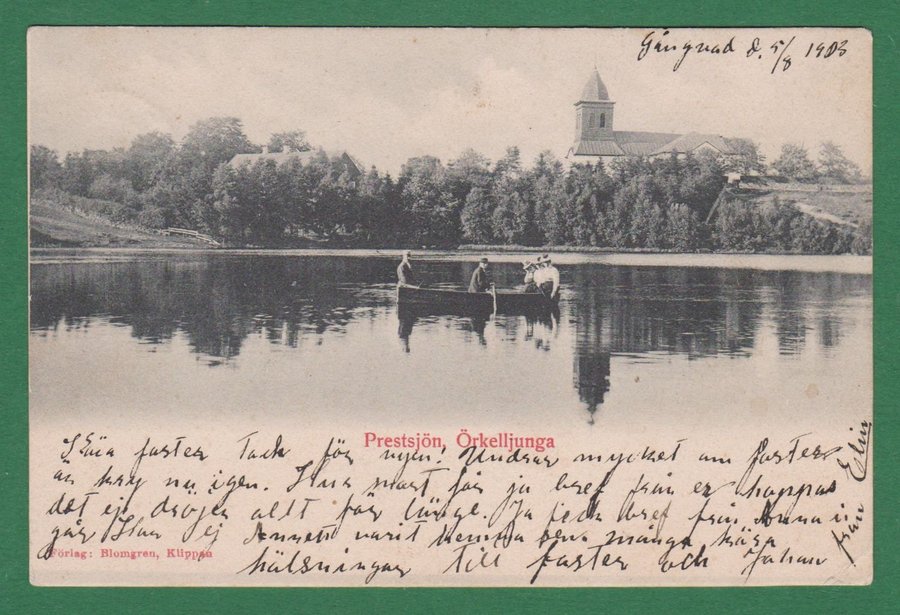 Gångvad d. 5/8 1903
Prestsjön, Örkelljunga
Kära faster Tack för vyen! Undrar mycket om faster
är kry nu igen. Snart får ja bref från er hoppas
det ej dröjer allt för länge. Ja fick bref från Anna i
går ej varit hemma sen många kära
hälsningar till faster och Johan
från Elin
Förlag: Blomgren, Klippan